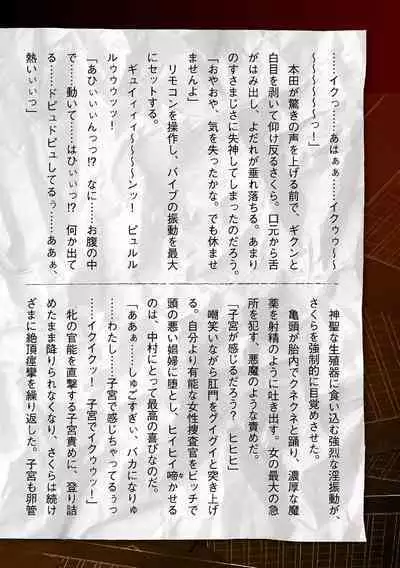 ……イクっ……あはぁぁ……イクゥゥ〜
〜〜〜〜〜っ！」
　本田が驚きの声を上げる前で、ギクンと
白目を剥いて仰け反るさくら。口元から舌
がはみ出し、よだれが垂れ落ちる。あまり
のすさまじさに失神してしまったのだろう。
「おやおや、気を失ったかな。でも休ませ
ませんよ」
　リモコンを操作し、バイブの振動を最大
にセットする。
　ギュイィィィ〜〜〜〜ンッ！　ビュルル
ルゥゥウッッ！
「あひぃぃぃんっっ!?　なに……お腹の中
で……動いて……はひぃっっ!?　何か出て
る……ドビュドビュしてるぅ……ああぁ、
熱いぃぃっ」
　神聖な生殖器に食い込む強烈な淫振動が、
さくらを強制的に目覚めさせた。
　亀頭が胎内でクネクネと踊り、濃厚な魔
薬を射精のように吐き出す。女の最大の急
所を犯す、悪魔のような責めだ。
「子宮が感じるだろう？　ヒヒヒ」
　嘲笑いながら肛門をグイグイと突き上げ
る。自分より有能な女性捜査官をビッチで
頭の悪い娼婦に堕とし、ヒイヒイ啼かせる
のは、中村にとって最高の喜びなのだ。
「ああぁ……しゅごすぎぃ、バカになりゅ
……わたし……子宮で感じちゃってるぅっ
……イクイクッ！　子宮でイクゥゥッ！」
　牝の官能を直撃する子宮責めに、登り詰
めたまま降りられなくなり、さくらは続け
ざまに絶頂痙攣を繰り返した。子宮も卵管